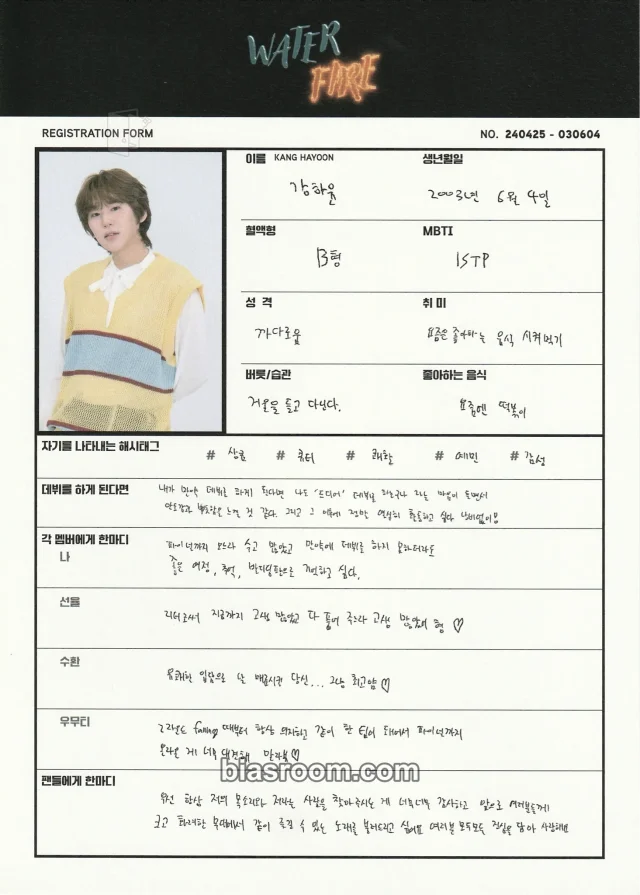 WATER
FIRE
REGISTRATION FORM
NO. 240425 - 030604
이름 KANG HAYOON
강하윤
생년월일
2003년 6월 4일
혈액형
B형
MBTI
ISTP
성 격
까다로움
취 미
요즘은 좋아하는 음식 시켜먹기
버릇/습관
거울을 들고 다닌다.
좋아하는 음식
요즘엔 떡볶이
자기를 나타내는 해시태그
# 상큼 # 큐티 # 쾌활 # 예민 # 감성
데뷔를 하게 된다면
내가 만약 데뷔를 하게 된다면 나도 '드디어' 데뷔를 하는구나 라는 마음이 들면서
안도감과 뿌듯함은 느낄 것 같다. 그리고 그 이후에 정말 열심히 활동하고 싶다
각 멤버에게 한마디
나
파이널까지 오느라 수고 많았고 만약에 데뷔를 하지 못하더라도
좋은 여정, 추억, 발디딤판으로 기억하고 싶다.
선율
리더로써 지금까지 고생 많았고 다 풀어 주느라 고생 많았어 형 ♡
수환
유쾌한 입담으로 날 배꼽시킨 당신... 그냥 최고얌 ♡
우무티
그래도 때부터 항상 의지하고 같이 한 팀이 돼어서 파이널까지
올라온 게 너무 대견해
biasroom.com
팬들에게 한마디
우선 항상 저의 목소리와 저라는 사람을 찾아주시는 게 너무너무 감사하고 앞으로 여러분들께
크고 화려한 무대에서 같이 즐길 수 있는 노래를 불러드리고 싶어요 여러분 모두모두 진심을 담아 사랑해요